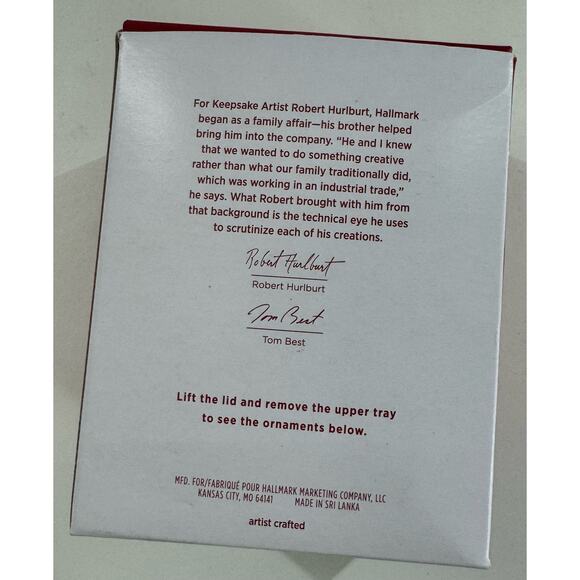 For Keepsake Artist Robert Hurlburt, Hallmark
began as a family affair—his brother helped
bring him into the company. “He and I knew
that we wanted to do something creative
rather than what our family traditionally did,
which was working in an industrial trade,”
he says. What Robert brought with him from
that background is the technical eye he uses
to scrutinize each of his creations.
Robert Hurlburt
Robert Hurlburt
Tom Best
Tom Best
Lift the lid and remove the upper tray
to see the ornaments below.
MFD. FOR/FABRIQUÉ POUR HALLMARK MARKETING COMPANY, LLC
KANSAS CITY, MO 64141 MADE IN SRI LANKA
artist crafted